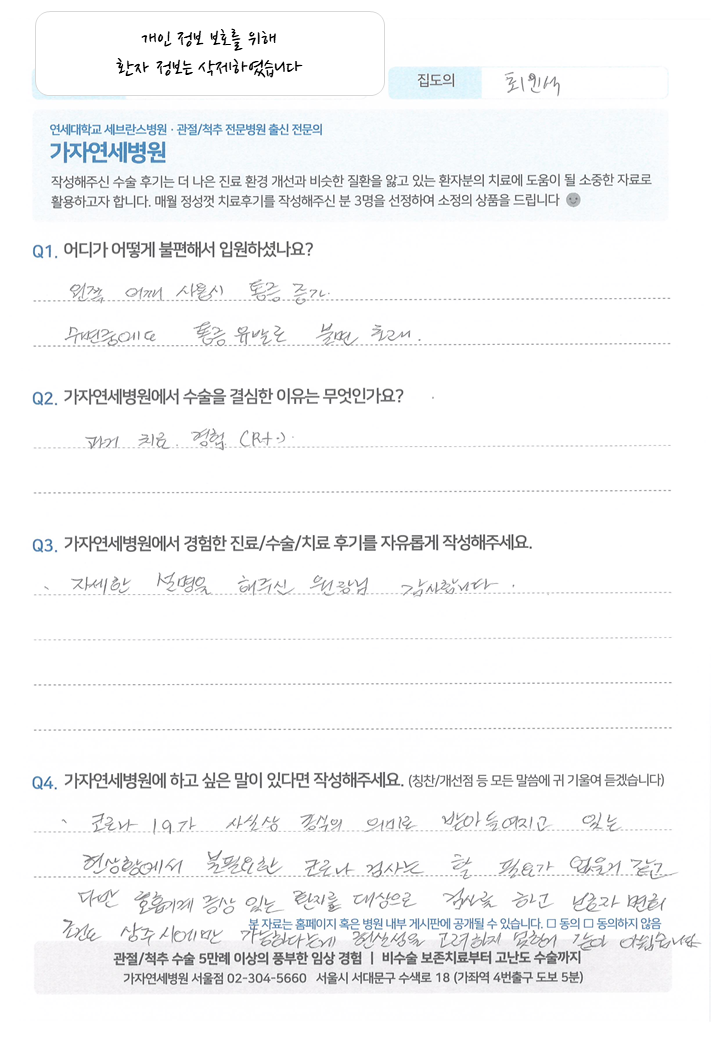 개인 정보 보호를 위해
환자 정보는 삭제하였습니다
집도의 최인석
연세대학교 세브란스병원 · 관절/척추 전문병원 출신 전문의
가자연세병원
작성해주신 수술 후기는 더 나은 진료 환경 개선과 비슷한 질환을 앓고 있는 환자분의 치료에 도움이 될 소중한 자료로
활용하고자 합니다. 매월 정성껏 치료후기를 작성해주신 분 3명을 선정하여 소정의 상품을 드립니다
Q1. 어디가 어떻게 불편해서 입원하셨나요?
왼쪽 어깨 사용시 통증 증가.
수면중에도 통증 유발로 불면 초래.
Q2. 가자연세병원에서 수술을 결심한 이유는 무엇인가요?
과거 치료 경험 (Rt.)
Q3. 가자연세병원에서 경험한 진료/수술/치료 후기를 자유롭게 작성해주세요.
자세한 설명을 해주신 원장님 감사합니다.
Q4. 가자연세병원에 하고 싶은 말이 있다면 작성해주세요. (칭찬/개선점 등 모든 말씀에 귀 기울여 듣겠습니다)
코로나 19가 사실상 종식의 의미로 받아들여지고 있는
현상황에서 불필요한 코로나 검사는 할 필요가 없을거 같고
다만 호흡기계 증상 있는 환자를 대상으로 검사를 하고 보호자 면회
본 자료는 홈페이지 혹은 병원 내부 게시판에 공개될 수 있습니다. □ 동의 □ 동의하지 않음
상주시에만 가능하다는게 현실성을 고려하지 못한거 같아 아쉽습니다
관절/척추 수술 5만례 이상의 풍부한 임상 경험 | 비수술 보존치료부터 고난도 수술까지
가자연세병원 서울점 02-304-5660 서울시 서대문구 수색로 18 (가좌역 4번출구 도보 5분)